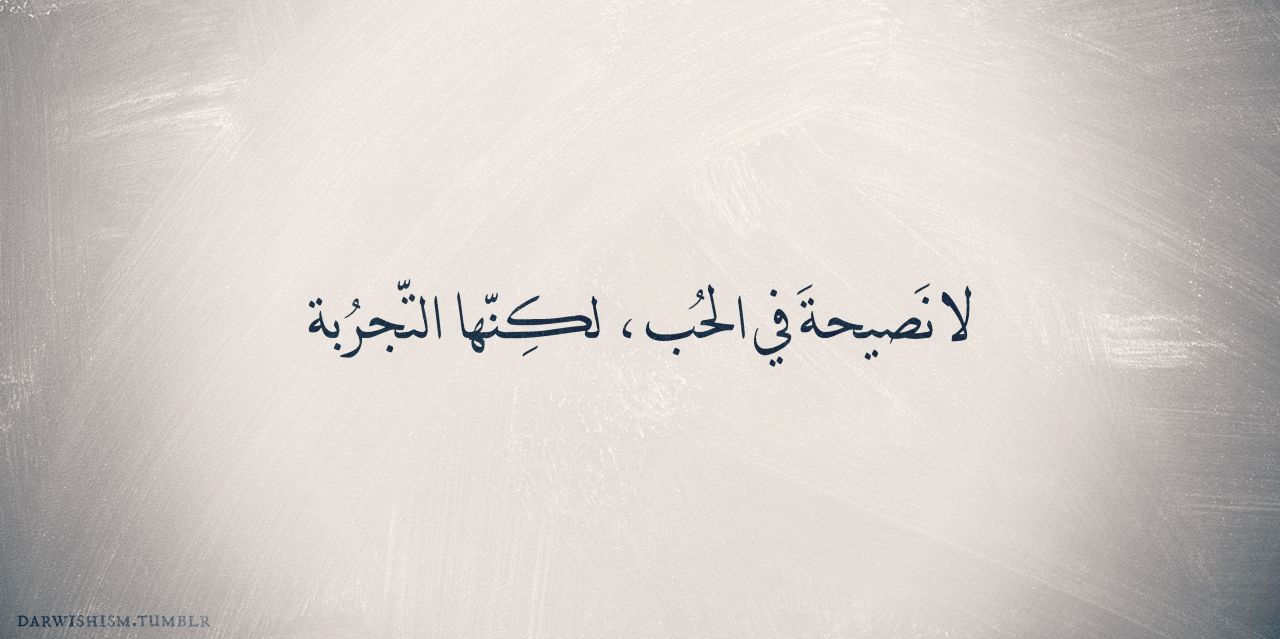 لا نَصيحةَ في الحُب ، لكِنّها التّجرُبة
DARWISHISM.TUMBLR